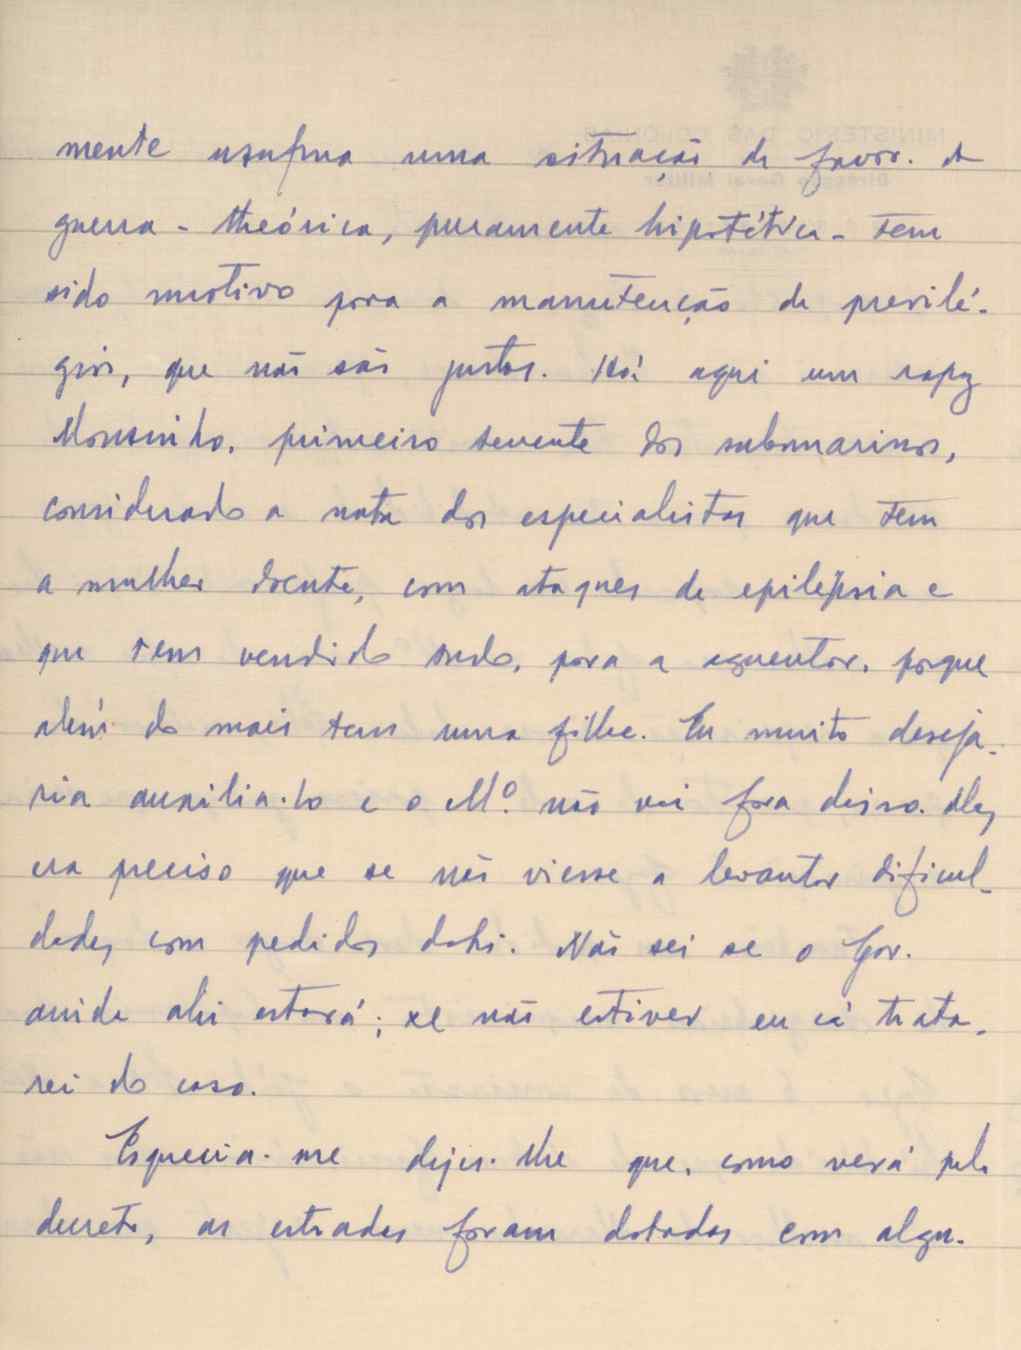 mente usufrua uma situação de favor. A
guerra - theórica, puramente hipotética - tem
sido motivo para a manutenção de previlé-
gios, que não são justos. Há aqui um rapaz
Mousinho, primeiro tenente dos submarinos,
considerado a nata dos especialistas que tem
a mulher doente, com ataques de epilepsia e
que tem vendido tudo, para a aguentar, porque
além do mais tem uma filha. Eu muito deseja-
ria auxilia-lo e o Mº. não vai fora disso. Mas
era preciso que se não viesse a levantar dificul-
dades com pedidos dahi. Não sei se o Gov.
ainda ahi estará; se não estiver eu cá trata-
rei do caso.
Esquecia-me dizer-lhe que, como verá pelo
decreto, as estradas foram dotadas com algu-